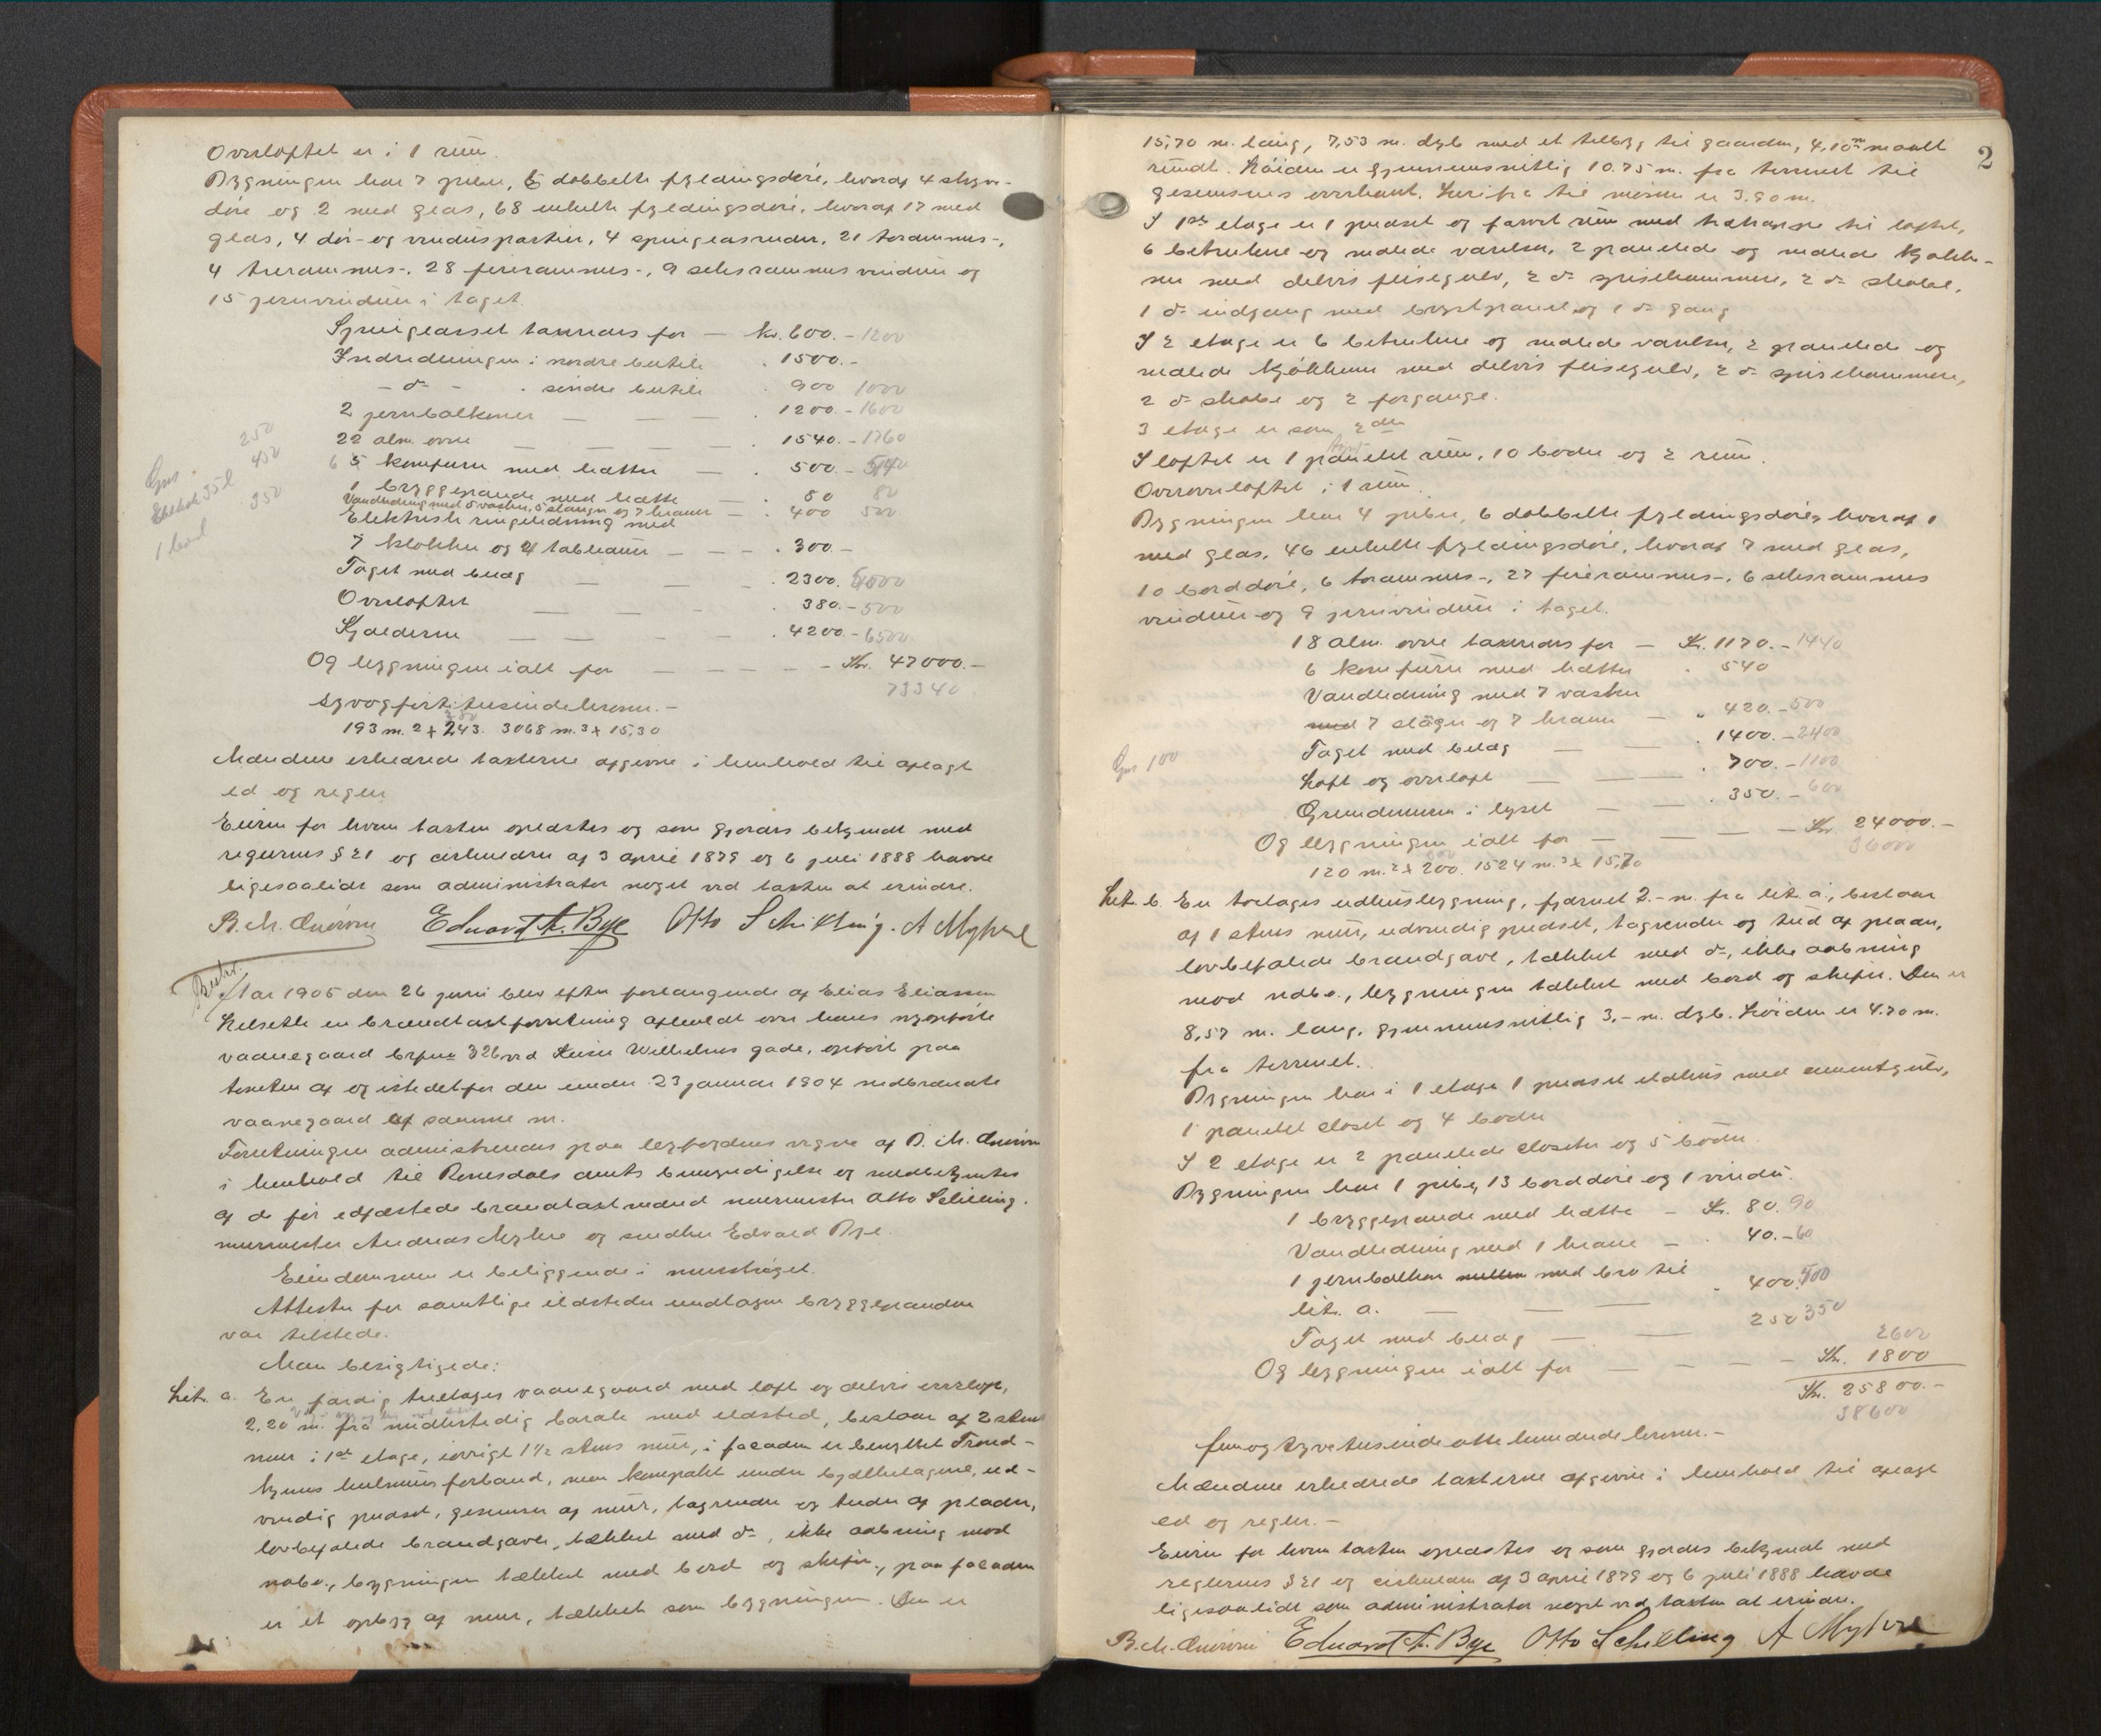 Overloftet er i 1 rum.
Bygningen har 7 piber, 6 dobbelte fyldingsdøre, hvoraf 4 skyve-
døre og 2 med glas, 68 enkelte fyldingsdøre, hvoraf 17 med
glas, 4 dør- og vinduspartier, 4 speilglasruder, 21 torammes-,
4 trerammes-, 28 firerammes-, 9 seksrammes vinduer og
15 jernvinduer i taget.
Speilglasset taxeredes for — kr. 600.- 1200
Indredningen i nordre butik . 1500.-
- do - . søndre butik . 900 1000
2 jernbalkoner — — — . 1200.- 1600
250
22 alm. ovne — — — . 1540.- 1760
Gas . 450
6 5 komfurer med hætter — . 500.- 540
1 bryggepande med hætte — . 80 80
350
Vandledning med 5 vasker, 5 slanger og 7 kraner — . 400 500
Elektrisk ringeledning med
1 bad
7 klokker og 4 tableauer — — — . 300.-
Taget med belæg — — — . 2300. 4000
Overloftet — — — . 380.- 500
Kjælderne — — — . 4200.- 6500
Og bygningen ialt for — — — — Kr. 47000.-
73340
syvogfirti tusinde kroner.-
193 m.² + 243. 3068 m.³ + 15,30
Mændene erklærede taxterne afgivne i henhold til aflagt
ed og regler.
Eieren for hvem taxten oplæstes og som gjordes bekjendt med
reglernes § 21 og cirkulærer af 3 april 1879 og 6 juli 1888 havde
ligesaalidt som administrator noget ved taxten at erindre.
B. M. Eduard A. Bye Otto Schilling. A Myhre
Beskr.
Aar 1905 den 26 juni blev efter forlangende af Elias Eliassen
Helsetle en brandtaxtforretning afholdt over hans nyopførte
vaanegaard brfno 326 ved Keiser Wilhelms gade, opført paa
tomten af og istedetfor den under 23 januar 1904 nedbrændte
vaanegaard af samme nr.
Forretningen administreredes paa lensfogdens vegne af B. M.
i henhold til Romsdals amts bemyndigelse og medbetjentes
af de før edfæstede brandtaxtmænd murmester Otto Schilling.
murmester Andreas Myhre og snedker Edvard Bye.
Eiendommen er beliggende i murstrøget.
Attester for samtlige ildsteder undtagen bryggepanden
var tilstede.
Man besigtigede:
Lit. a. En færdig treetages vaanegaard med loft og delvis overloft,
2,20 m. fra midlertidig barak med ildsted, bestaar af 2 stens
mur i 1st etage, iøvrigt 1½ stens mur, i facaden er benyttet Trond-
hjems hulmursforband, men kompakt under bjælkelagene, ud-
vendig pudset, gesimser af mur, tagrender og tuder af plader,
lovbefalede brandgavle, tækket med do, ikke aabning mod
nabo., bygningen tækket med bord og skifer., paa facaden
er et opbyg af mur, tækket som bygningen. Den er
2
15,70 m. lang, 7,53 m. dyb med et tilbyg til gaarden, 4,10 m maalt
rundt. Høiden er gjennemsnitlig 10.75 m. fra terrænet til
gesimsens overkant. Herifra til mønen er 3,90 m.
I 1ste etage er 1 pudset og farvet rum med trætrappe til loftet,
6 betrukne og malede værelser, 2 panelede og malede kjøkke-
ner med delvis flisegulv, 2 do spisekammere, 2 do skabe,
1 do indgang med brystpanel og 1 do gang
I 2 etage er 6 betrukne og malede værelser, 2 panelede og
malede kjøkkener med delvis flisegulv, 2 do spisekammere,
2 do skabe og 2 forgange.
3 etage er som 2den
I loftet er 1 panelet rum, 10 boder og 2 rum.
Overoverloftet i 1 rum.
Bygningen har 4 piber, 6 dobbelte fyldingsdøre, hvoraf 1
med glas, 46 enkelte fyldingsdøre, hvoraf 7 med glas,
10 borddøre, 6 torammes-, 27 firerammes-, 6 seksrammes
vinduer og 9 jernvinduer i taget.
18 alm. ovne taxeredes for — Kr. 1170.- 1440
6 komfurer med hætter . 540
Vandledning med 7 vasker
med 7 slanger og 7 kraner — „ 420.- 500
Gas 100
Taget med belæg — — . 1400.- 2400
Loft og overloft — — . 700.- 1100
Grundmuren i lyset — — . 350.- 600
Og bygningen ialt for — — — — Kr. 24000.-
36000
120 m.² + 200. 1524 m.³ + 15,70
Lit. b. En toetages udhusbygning, fjernet 2.- m. fra lit. a., bestaar
af 1 stens mur, udvendig pudset, tagrender og tud af plader,
lovbefalede brandgavle, tækket med do, ikke aabning
mod nabo., bygningen tækket med bord og skifer. Den er
8,57 m. lang, gjennemsnitlig 3,- m. dyb. Høiden er 4.70 m.
fra terrænet.
Bygningen har i 1 etage 1 pudset ildhus med cementgulv,
1 panelet closet og 4 boder
I 2 etage er 2 panelede closeter og 5 boder.
Bygningen har 1 pibe, 13 borddøre og 1 vindu.
1 bryggepande med hætte — Kr. 80. 90
Vandledning med 1 kran — . 40.- 60
1 jernbalkon mellem med bro til
lit. a. — — — . 400. 500
Taget med belæg — — 250 350
2600
Og bygningen ialt for — — — — Kr. 1800
Kr. 25800.-
38600
femogtyvetusinde otte hundrede kroner.-
Mændene erklærede taxterne afgivne i henhold til aflagt
ed og regler.-
Eieren for hvem taxten oplæstes og som gjordes bekjendt med
reglernes § 21 og cirkulærer af 3 april 1879 og 6 juli 1888 havde
ligesaalidt som administrator noget ved taxten at erindre.
B. M. Eduard A. Bye Otto Schilling A Myhre